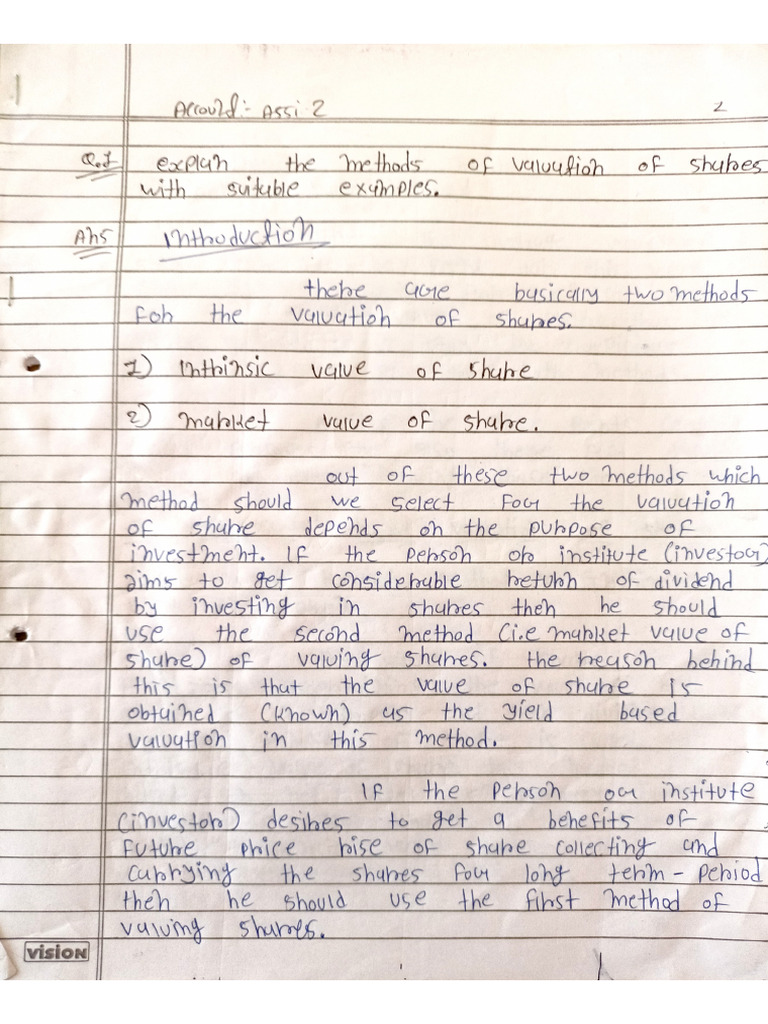 Account :- Assi. 2
2
Q.1 explain the methods of valuation of shares
with suitable examples.
Ans Introduction
there are basically two methods
for the valuation of shares.
1) intrinsic value of share
2) market value of share.
out of these two methods which
method should we select for the valuation
of share depends on the purpose of
investment. If the person or institute (investor)
aims to get considerable return of dividend
by investing in shares then he should
use the second method (i.e market value of
share) of valuing shares. the reason behind
this is that the value of share is
obtained (known) as the yield based
valuation in this method.
If the person or institute
(investor) desires to get a benefits of
future price rise of share collecting and
carrying the shares for long term - period
then he should use the first method of
valuing shares.
VISION